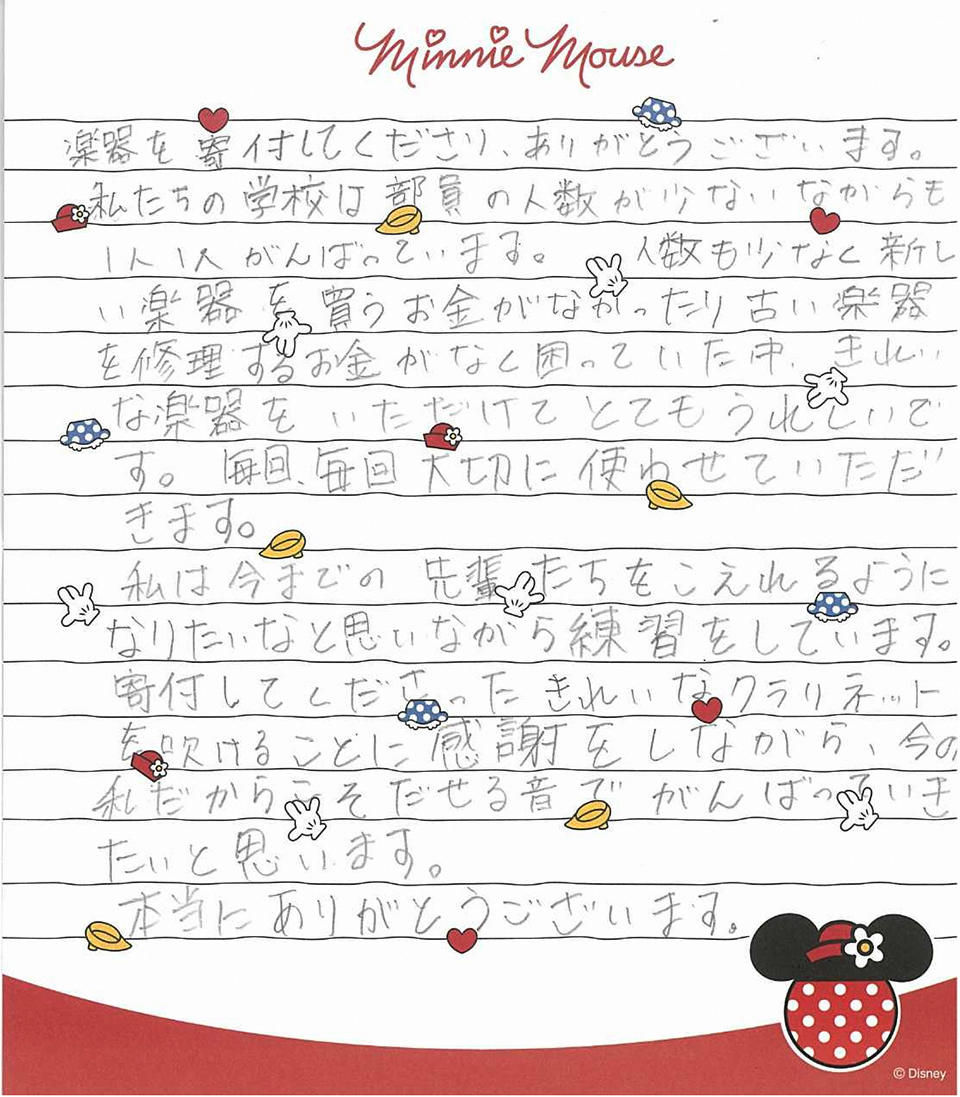 Minnie Mouse
楽器を寄付してくださり、ありがとうございます。
私たちの学校は部員の人数が少ないながらも
1人1人がんばっています。 人数も少なく新し
い楽器を買うお金がなかったり古い楽器
を修理するお金がなく困っていた中、きれい
な楽器をいただけてとてもうれしいで
す。毎回、毎回大切に使わせていただ
きます。
私は今までの先輩たちをこえれるように
なりたいなと思いながら練習をしています。
寄付してくださったきれいなクラリネット
を吹けることに感謝をしながら、今の
私だからこそだせる音でがんばっていき
たいと思います。
本当にありがとうございます。
© Disney